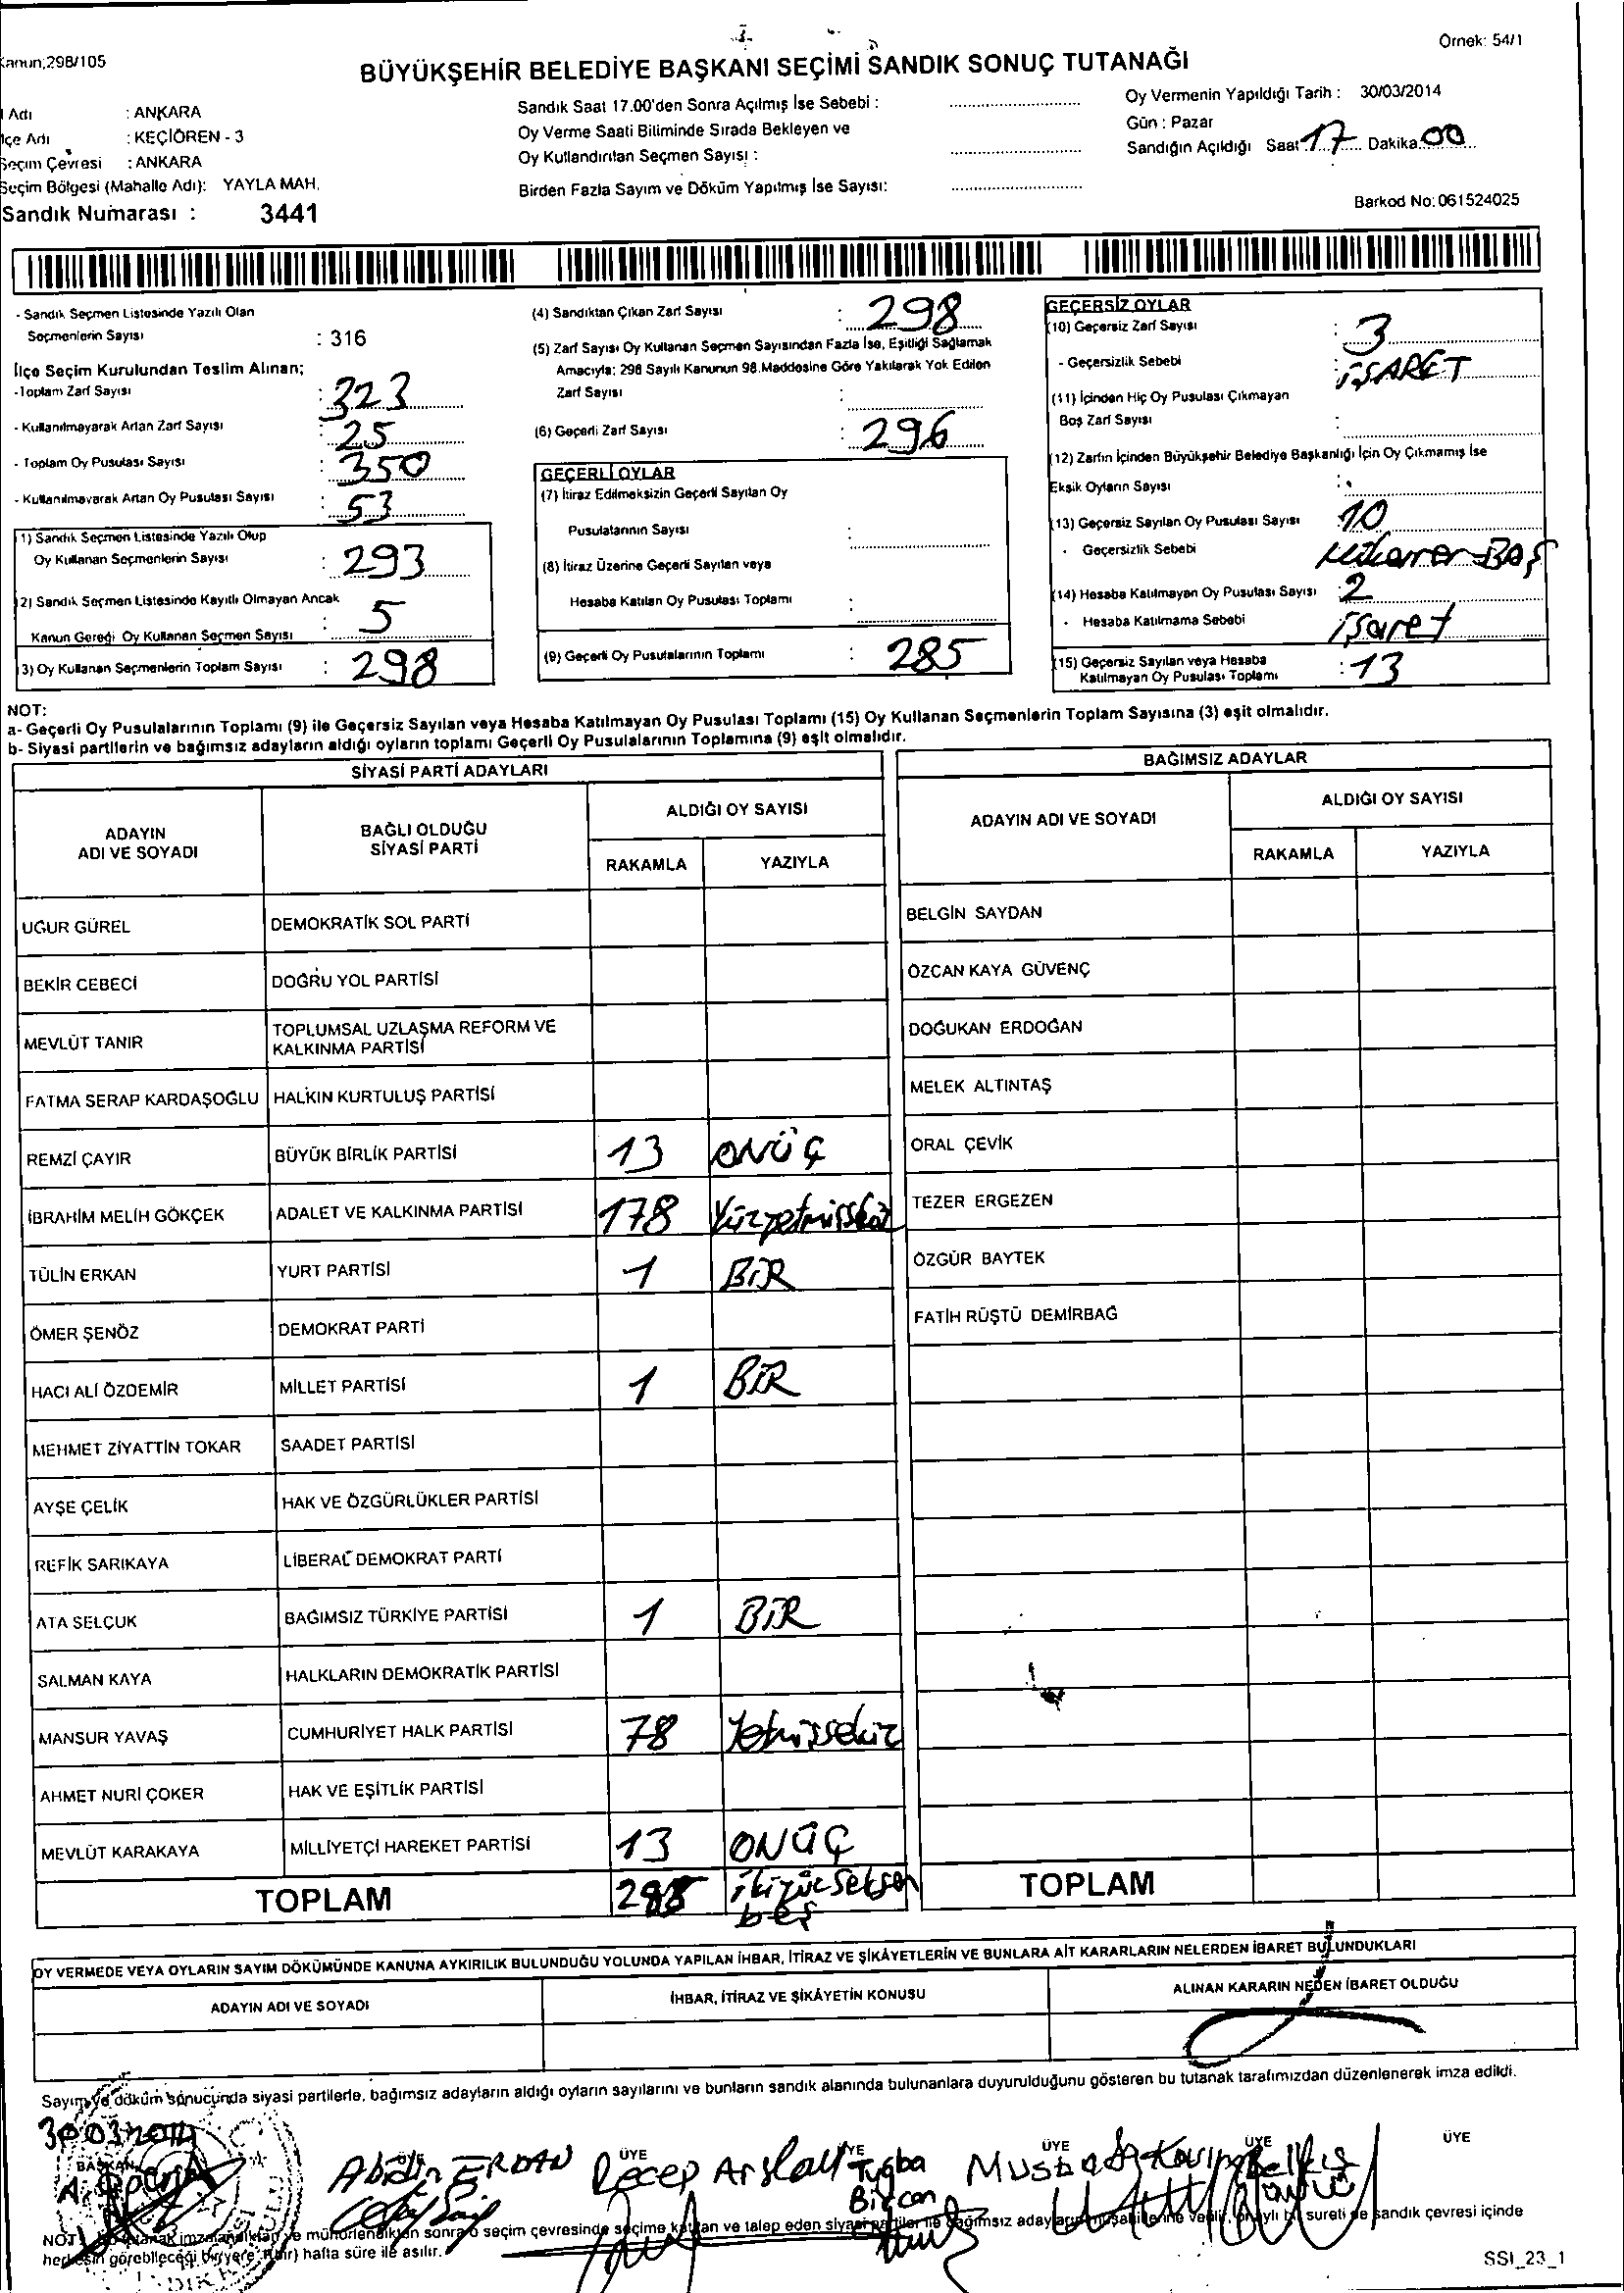 Kanun;298/105
Örnek: 54/1
BÜYÜKŞEHİR BELEDİYE BAŞKANI SEÇİMİ SANDIK SONUÇ TUTANAĞI
l Adı : ANKARA
lçe Adı : KEÇİÖREN - 3
Seçim Çevresi : ANKARA
Seçim Bölgesi (Mahalle Adı): YAYLA MAH.
Sandık Numarası : 3441
Sandık Saat 17.00'den Sonra Açılmış İse Sebebi :
Oy Verme Saati Bitiminde Sırada Bekleyen ve
Oy Kullandırılan Seçmen Sayısı :
Birden Fazla Sayım ve Döküm Yapılmış İse Sayısı:
Oy Vermenin Yapıldığı Tarih : 30/03/2014
Gün : Pazar
Sandığın Açıldığı Saat 17 Dakika 00
Barkod No: 061524025
- Sandık Seçmen Listesinde Yazılı Olan
Seçmenlerin Sayısı : 316
İlçe Seçim Kurulundan Teslim Alınan;
-Toplam Zarf Sayısı : 323
- Kullanılmayarak Artan Zarf Sayısı : 25
- Toplam Oy Pusulası Sayısı : 350
- Kullanılmayarak Artan Oy Pusulası Sayısı : 53
1) Sandık Seçmen Listesinde Yazılı Olup
Oy Kullanan Seçmenlerin Sayısı : 293
2) Sandık Seçmen Listesinde Kayıtlı Olmayan Ancak
Kanun Gereği Oy Kullanan Seçmen Sayısı : 5
3) Oy Kullanan Seçmenlerin Toplam Sayısı : 298
(4) Sandıktan Çıkan Zarf Sayısı : 298
(5) Zarf Sayısı Oy Kullanan Seçmen Sayısından Fazla İse, Eşitliği Sağlamak
Amacıyla: 298 Sayılı Kanunun 98.Maddesine Göre Yakılarak Yok Edilen
Zarf Sayısı :
(6) Geçerli Zarf Sayısı : 296
GEÇERLİ OYLAR
(7) İtiraz Edilmeksizin Geçerli Sayılan Oy
Pusulalarının Sayısı :
(8) İtiraz Üzerine Geçerli Sayılan veya
Hesaba Katılan Oy Pusulası Toplamı :
(9) Geçerli Oy Pusulalarının Toplamı : 285
GEÇERSİZ OYLAR
(10) Geçersiz Zarf Sayısı : 3
- Geçersizlik Sebebi : İŞARET
(11) İçinden Hiç Oy Pusulası Çıkmayan
Boş Zarf Sayısı :
(12) Zarfın İçinden Büyükşehir Belediye Başkanlığı İçin Oy Çıkmamış İse
Eksik Oyların Sayısı :
(13) Geçersiz Sayılan Oy Pusulası Sayısı 10
- Geçersizlik Sebebi Mükerrer-BOŞ
(14) Hesaba Katılmayan Oy Pusulası Sayısı : 2
- Hesaba Katılmama Sebebi işaret
(15) Geçersiz Sayılan veya Hesaba
Katılmayan Oy Pusulası Toplamı : 13
NOT:
a- Geçerli Oy Pusulalarının Toplamı (9) ile Geçersiz Sayılan veya Hesaba Katılmayan Oy Pusulası Toplamı (15) Oy Kullanan Seçmenlerin Toplam Sayısına (3) eşit olmalıdır.
b- Siyasi partilerin ve bağımsız adayların aldığı oyların toplamı Geçerli Oy Pusulalarının Toplamına (9) eşit olmalıdır.
SİYASİ PARTİ ADAYLARI
ADAYIN
ADI VE SOYADI
BAĞLI OLDUĞU
SİYASİ PARTİ
ALDIĞI OY SAYISI
RAKAMLA YAZIYLA
UĞUR GÜREL DEMOKRATİK SOL PARTİ
BEKİR CEBECİ DOĞRU YOL PARTİSİ
MEVLÜT TANIR TOPLUMSAL UZLAŞMA REFORM VE
KALKINMA PARTİSİ
FATMA SERAP KARDAŞOĞLU HALKIN KURTULUŞ PARTİSİ
REMZİ ÇAYIR BÜYÜK BİRLİK PARTİSİ 13 ONÜÇ
İBRAHİM MELİH GÖKÇEK ADALET VE KALKINMA PARTİSİ 178 Yüzyetmişsekiz
TÜLİN ERKAN YURT PARTİSİ 1 BİR
ÖMER ŞENÖZ DEMOKRAT PARTİ
HACI ALİ ÖZDEMİR MİLLET PARTİSİ 1 BİR
MEHMET ZİYATTİN TOKAR SAADET PARTİSİ
AYŞE ÇELİK HAK VE ÖZGÜRLÜKLER PARTİSİ
REFİK SARIKAYA LİBERAL DEMOKRAT PARTİ
ATA SELÇUK BAĞIMSIZ TÜRKİYE PARTİSİ 1 BİR
SALMAN KAYA HALKLARIN DEMOKRATİK PARTİSİ
MANSUR YAVAŞ CUMHURİYET HALK PARTİSİ 78 Yetmişsekiz
AHMET NURİ ÇOKER HAK VE EŞİTLİK PARTİSİ
MEVLÜT KARAKAYA MİLLİYETÇİ HAREKET PARTİSİ 13 ONÜÇ
TOPLAM 285 ikiyüzseksen
beş
BAĞIMSIZ ADAYLAR
ADAYIN ADI VE SOYADI
ALDIĞI OY SAYISI
RAKAMLA YAZIYLA
BELGİN SAYDAN
ÖZCAN KAYA GÜVENÇ
DOĞUKAN ERDOĞAN
MELEK ALTINTAŞ
ORAL ÇEVİK
TEZER ERGEZEN
ÖZGÜR BAYTEK
FATİH RÜŞTÜ DEMİRBAĞ
TOPLAM
OY VERMEDE VEYA OYLARIN SAYIM DÖKÜMÜNDE KANUNA AYKIRILIK BULUNDUĞU YOLUNDA YAPILAN İHBAR, İTİRAZ VE ŞİKÂYETLERİN VE BUNLARA AİT KARARLARIN NELERDEN İBARET BULUNDUKLARI
ADAYIN ADI VE SOYADI İHBAR, İTİRAZ VE ŞİKÂYETİN KONUSU ALINAN KARARIN NEDEN İBARET OLDUĞU
Sayım ve döküm sonucunda siyasi partilerle, bağımsız adayların aldığı oyların sayılarını ve bunların sandık alanında bulunanlara duyurulduğunu gösteren bu tutanak tarafımızdan düzenlenerek imza edildi.
30032014
BAŞKAN ÜYE ÜYE ÜYE ÜYE ÜYE
Abidin ERDAN Recep Arslan Tuğba
Bircan
NOT: tutanak imzalandıktan ve mühürlendikten sonra o seçim çevresinde seçime katılan ve talep eden siyasi partiler ile bağımsız aday müşahitlerine verilir, onaylı bir sureti de sandık çevresi içinde
herkesin görebileceği bir yere (bir) hafta süre ile asılır.
SSI_23_1